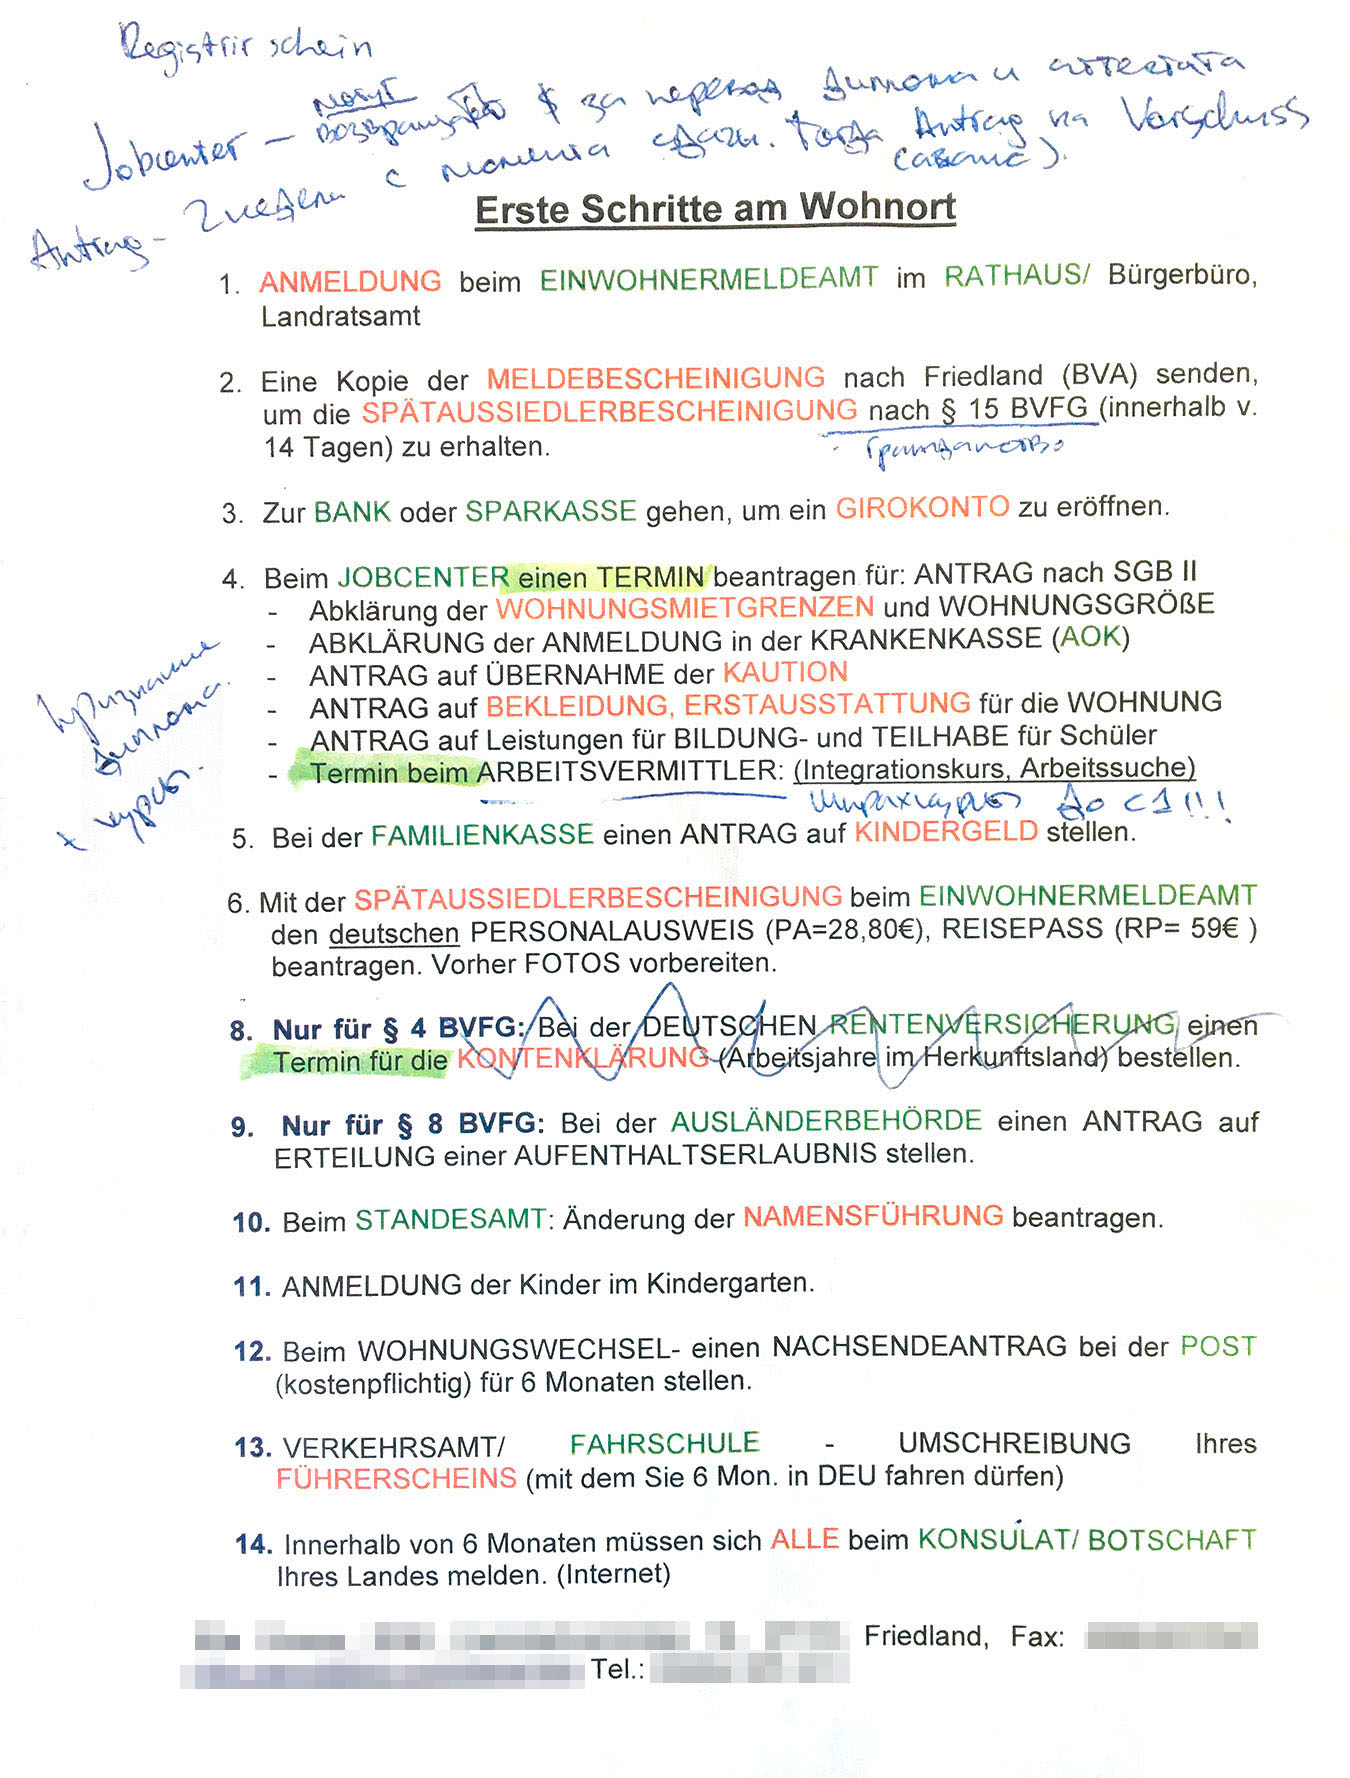 Registrir schein
могут
Jobcenter – возвращать $ за перевод диплома и аттестата
Antrag – 2 недели с момента сдачи. Тогда Antrag на Vorschuss
(аванс).
Erste Schritte am Wohnort
1. ANMELDUNG beim EINWOHNERMELDEAMT im RATHAUS/ Bürgerbüro,
Landratsamt
2. Eine Kopie der MELDEBESCHEINIGUNG nach Friedland (BVA) senden,
um die SPÄTAUSSIEDLERBESCHEINIGUNG nach § 15 BVFG (innerhalb v.
14 Tagen) zu erhalten.
гражданство
3. Zur BANK oder SPARKASSE gehen, um ein GIROKONTO zu eröffnen.
4. Beim JOBCENTER einen TERMIN beantragen für: ANTRAG nach SGB II
- Abklärung der WOHNUNGSMIETGRENZEN und WOHNUNGSGRÖßE
- ABKLÄRUNG der ANMELDUNG in der KRANKENKASSE (AOK)
- ANTRAG auf ÜBERNAHME der KAUTION
- ANTRAG auf BEKLEIDUNG, ERSTAUSSTATTUNG für die WOHNUNG
- ANTRAG auf Leistungen für BILDUNG- und TEILHABE für Schüler
- Termin beim ARBEITSVERMITTLER: (Integrationskurs, Arbeitssuche)
признание
диплома.
+ курсы.
до C1!!!
5. Bei der FAMILIENKASSE einen ANTRAG auf KINDERGELD stellen.
6. Mit der SPÄTAUSSIEDLERBESCHEINIGUNG beim EINWOHNERMELDEAMT
den deutschen PERSONALAUSWEIS (PA=28,80€), REISEPASS (RP= 59€ )
beantragen. Vorher FOTOS vorbereiten.
8. Nur für § 4 BVFG: Bei der DEUTSCHEN RENTENVERSICHERUNG einen
Termin für die KONTENKLÄRUNG (Arbeitsjahre im Herkunftsland) bestellen.
9. Nur für § 8 BVFG: Bei der AUSLÄNDERBEHÖRDE einen ANTRAG auf
ERTEILUNG einer AUFENTHALTSERLAUBNIS stellen.
10. Beim STANDESAMT: Änderung der NAMENSFÜHRUNG beantragen.
11. ANMELDUNG der Kinder im Kindergarten.
12. Beim WOHNUNGSWECHSEL- einen NACHSENDEANTRAG bei der POST
(kostenpflichtig) für 6 Monaten stellen.
13. VERKEHRSAMT/ FAHRSCHULE - UMSCHREIBUNG Ihres
FÜHRERSCHEINS (mit dem Sie 6 Mon. in DEU fahren dürfen)
14. Innerhalb von 6 Monaten müssen sich ALLE beim KONSULAT/ BOTSCHAFT
Ihres Landes melden. (Internet)
Friedland, Fax:
Tel.: